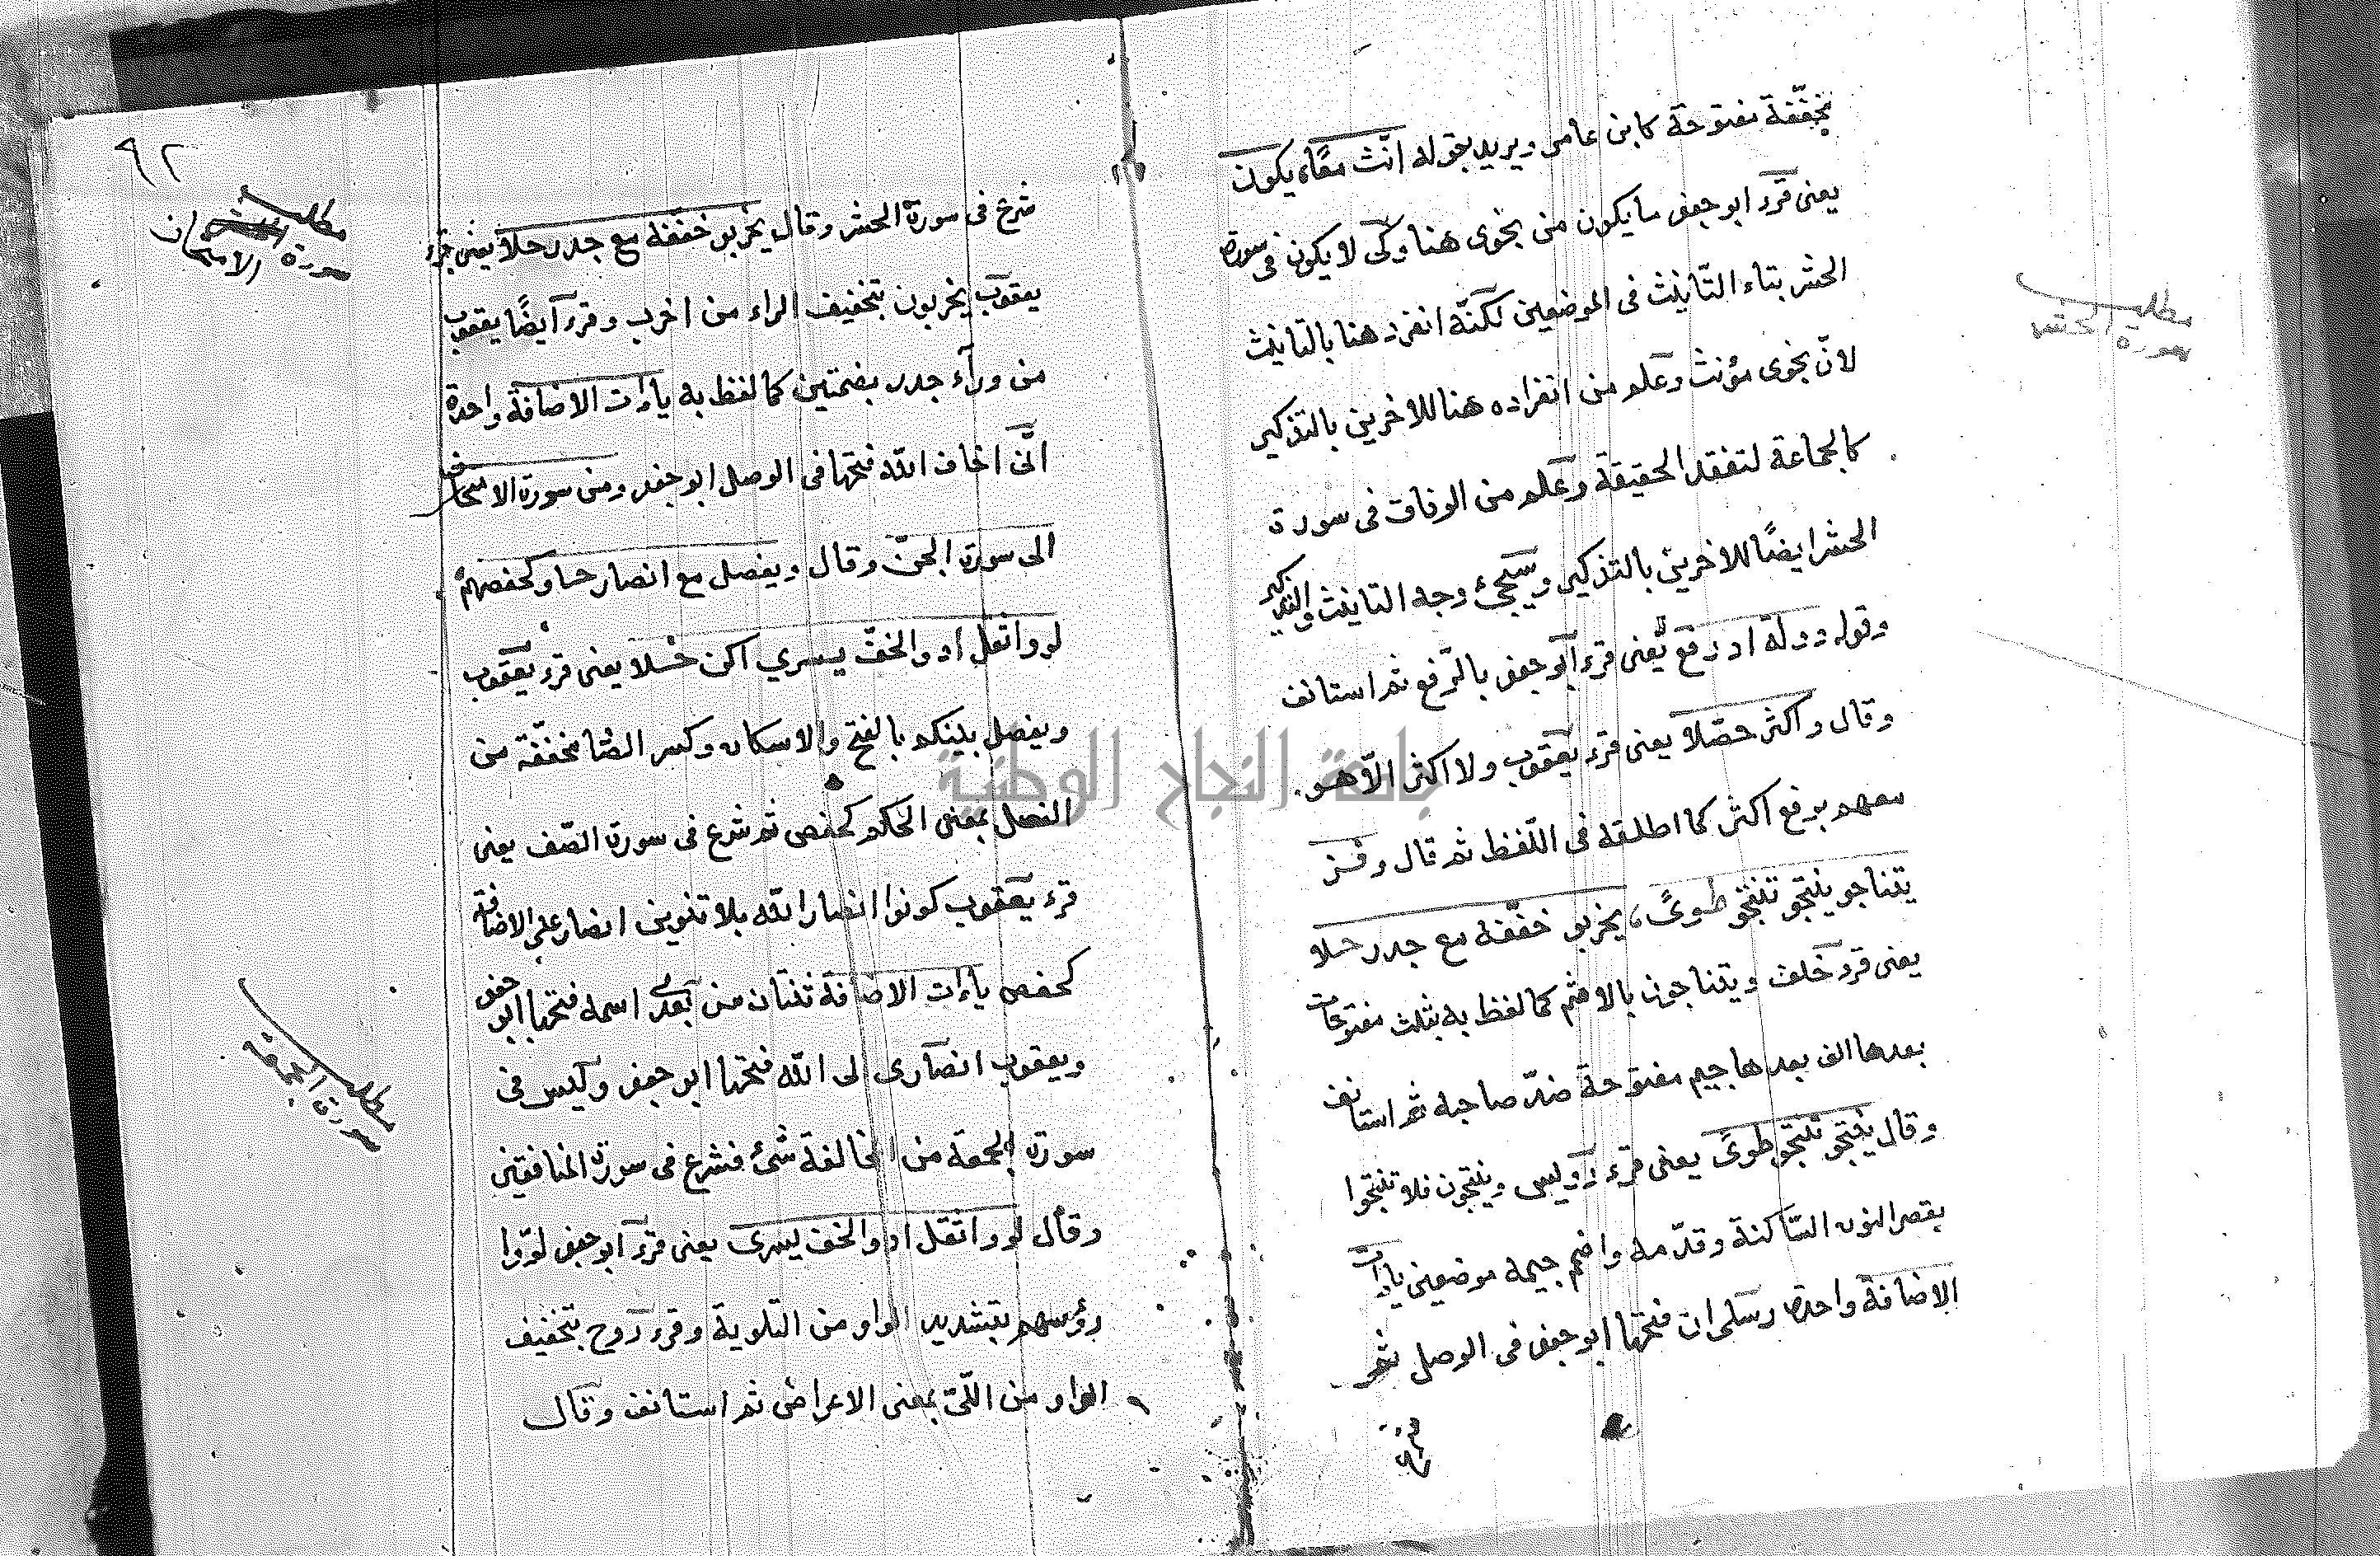 مخففة مفتوحة كابن عامر ويريد بقوله انّث معًا، يكون
يعنى قرء ابو جعفر ما يكون من نجوى هنا وكى لا يكون فى سورة
الحشر بتاء التّانيث فى الموضعين لكنّه انفرد هنا بالتانيث
لانّ نجوى مؤنث وعلم من انفراده هنا للاخرين بالتذكير
كالجماعة لتفقد الحقيقة وعلم من الوفاق فى سورة
الحشر ايضًا للاخرين بالتذكير وسيجئ وجه التانيث والتذكير
وقوله دولة اد رفع يعنى قرء ابو جعفر بالرّفع ثم استانف
وقال واكثر حصّلا يعنى قرء يعقوب ولا اكثر الّا هو
معهم برفع اكثر كما اطلقه فى اللّفظ ثم قال وفز
يتناجو ينتجو تنتجو طوىً، يخربو خفّفه مع جدر حلا
يعنى قرء خلف ويتناجون بالافثم كما لفظ به بثلث مفتوحات
بعدها الف بعدها جيم مفتوحة ضدّ صاحبه ثم استانف
وقال ينتجو تنتجو طوىً يعنى قرء رويس وينتجون فلا تنتجوا
بقصر النون السّاكنة وقدّمه واضم جيمه موضعين ياءات
الاضافة واحدة رسلى ان فتحها ابو جعفر فى الوصل ثم
شرع
٩٢
مطلب
سورة الامتحان
شرع فى سورة الحشر وقال يخربو خفّفه مع جدر حلا يعنى قرء
يعقوب يخربون بتخفيف الراء من اخرب وقرء ايضًا يعقوب
من ورآء جدر بضمتين كما لفظ به ياءات الاضافة واحدة
انّى اخاف اللّه فتحها فى الوصل ابو جعفر ومن سورة الامتحان
الى سورة الجنّ وقال ويفصل مع انصار حاو كحفصهم
لووا ثقل اد والخفّ يسرى اكن حلا يعنى قرء يعقوب
ويفصل بينكم بالفتح والاسكان وكسر الصّاد مخفّفة من
الفصل بمعنى الحكم كحفص ثم شرع فى سورة الصّف يعنى
قرء يعقوب كونوا انصار اللّه بلا تنوين انصار على الاضافة
كحفص ياءات الاضافة ثنتان من بعدى اسمه فتحها ابو جعفر
ويعقوب انصارى الى اللّه فتحها ابو جعفر وليس فى
سورة الجمعة من المخالفة شئ فشرع فى سورة المنافقين
وقال لووا ثقل اد والخف يسرى يعنى قرء ابو جعفر لوّوا
رؤسهم بتشديد الواو من التلوية وقرء روح بتخفيف
الواو من اللّىّ بمعنى الاعراض ثم استانف وقال
مطلب
سورة الجمعة
جامعة النجاح الوطنية